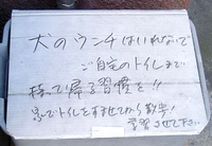 犬のウンチはいれないで
ご自宅のトイレまで
持って帰る習慣を!!
家でトイレをすませてから散歩!
学習させて下さい